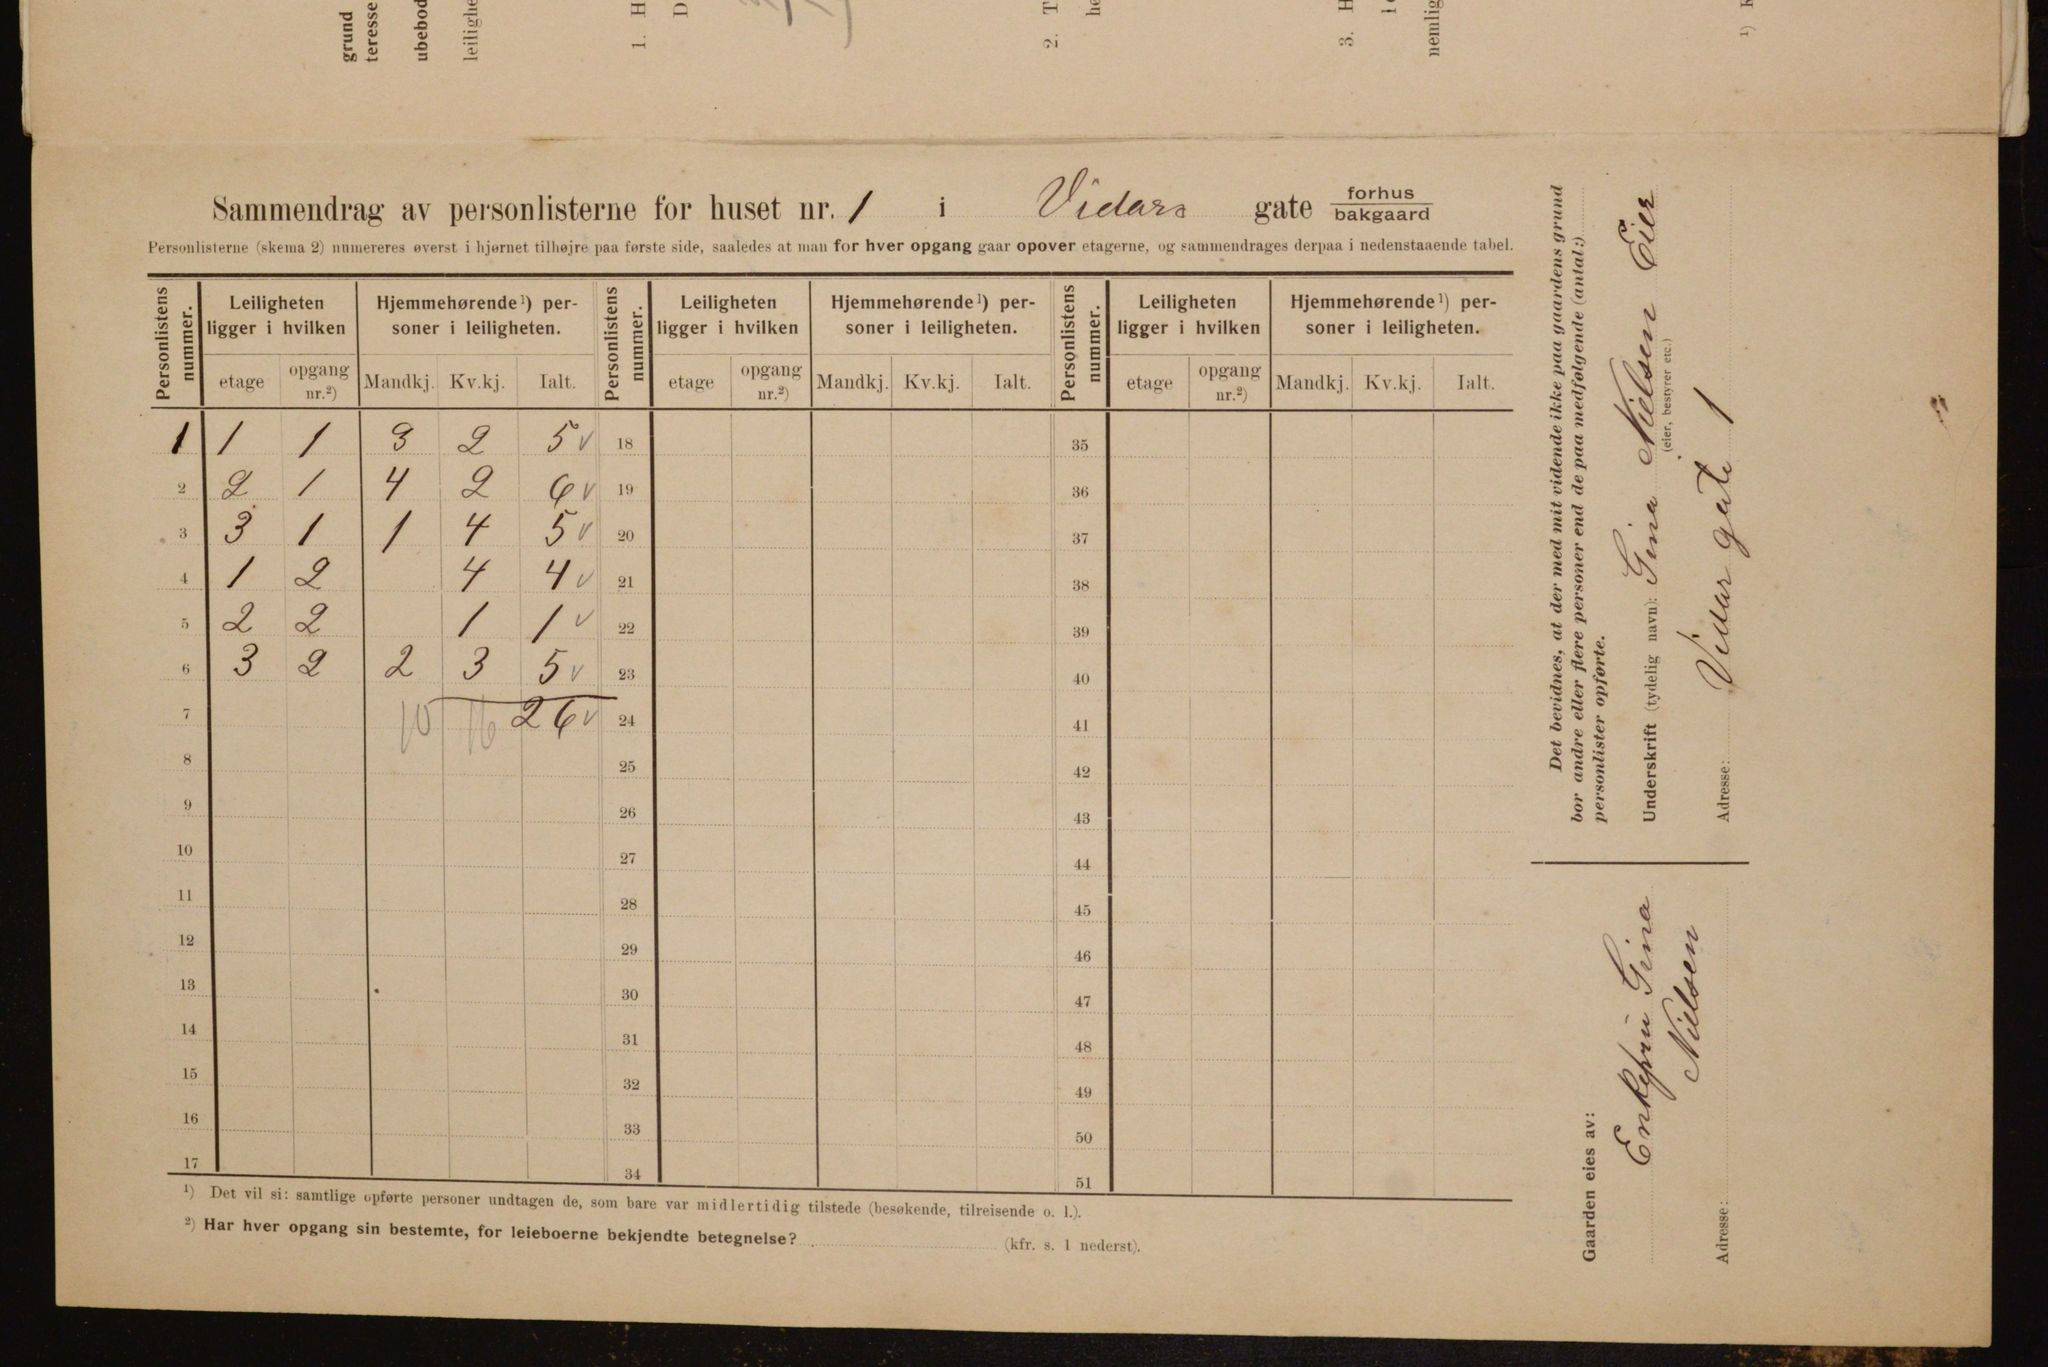 grund
teresse
ubebod
leilighe
1. H
D
2. T
he
3. H
nemlig
¹)
Sammendrag av personlisterne for huset nr. 1 i Vidars gate forhus
bakgaard
Personlisterne (skema 2) numereres øverst i hjørnet tilhøjre paa første side, saaledes at man for hver opgang gaar opover etagerne, og sammendrages derpaa i nedenstaaende tabel.
Personlistens nummer. Leiligheten ligger i hvilken Hjemmehørende¹) personer i leiligheten. Personlistens nummer. Leiligheten ligger i hvilken Hjemmehørende¹) personer i leiligheten. Personlistens nummer. Leiligheten ligger i hvilken Hjemmehørende¹) personer i leiligheten.
etage opgang nr.²) Mandkj. Kv.kj. Ialt. etage opgang nr.²) Mandkj. Kv.kj. Ialt. etage opgang nr.²) Mandkj. Kv.kj. Ialt.
1 1 1 3 2 5 v 18 35
2 2 1 4 2 6 v 19 36
3 3 1 1 4 5 v 20 37
4 1 2 4 4 v 21 38
5 2 2 1 1 v 22 39
6 3 2 2 3 5 v 23 40
7 10 16 26 v 24 41
8 25 42
9 26 43
10 27 44
11 28 45
12 29 46
13 30 47
14 31 48
15 32 49
16 33 50
17 34 51
¹) Det vil si: samtlige opførte personer undtagen de, som bare var midlertidig tilstede (besøkende, tilreisende o. l.).
²) Har hver opgang sin bestemte, for leieboerne bekjendte betegnelse? (kfr. s. 1 nederst).
Det bevidnes, at der med mit vidende ikke paa gaardens grund
bor andre eller flere personer end de paa medfølgende (antal:)
personlister opførte.
Underskrift (tydelig navn): Gina Nielsen Eier
(eier, bestyrer etc.)
Adresse: Vidar gate 1
Gaarden eies av:
Enkefru Gina
Nielsen
Adresse: